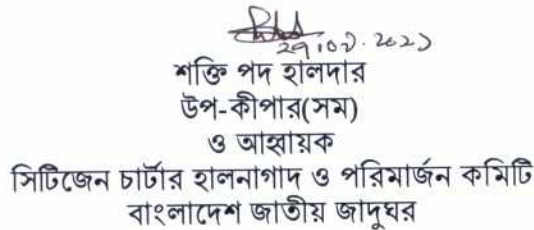 শক্তি পদ হালদার
উপ-কীপার(সম)
ও আহ্বায়ক
সিটিজেন চার্টার হালনাগাদ ও পরিমার্জন কমিটি
বাংলাদেশ জাতীয় জাদুঘর